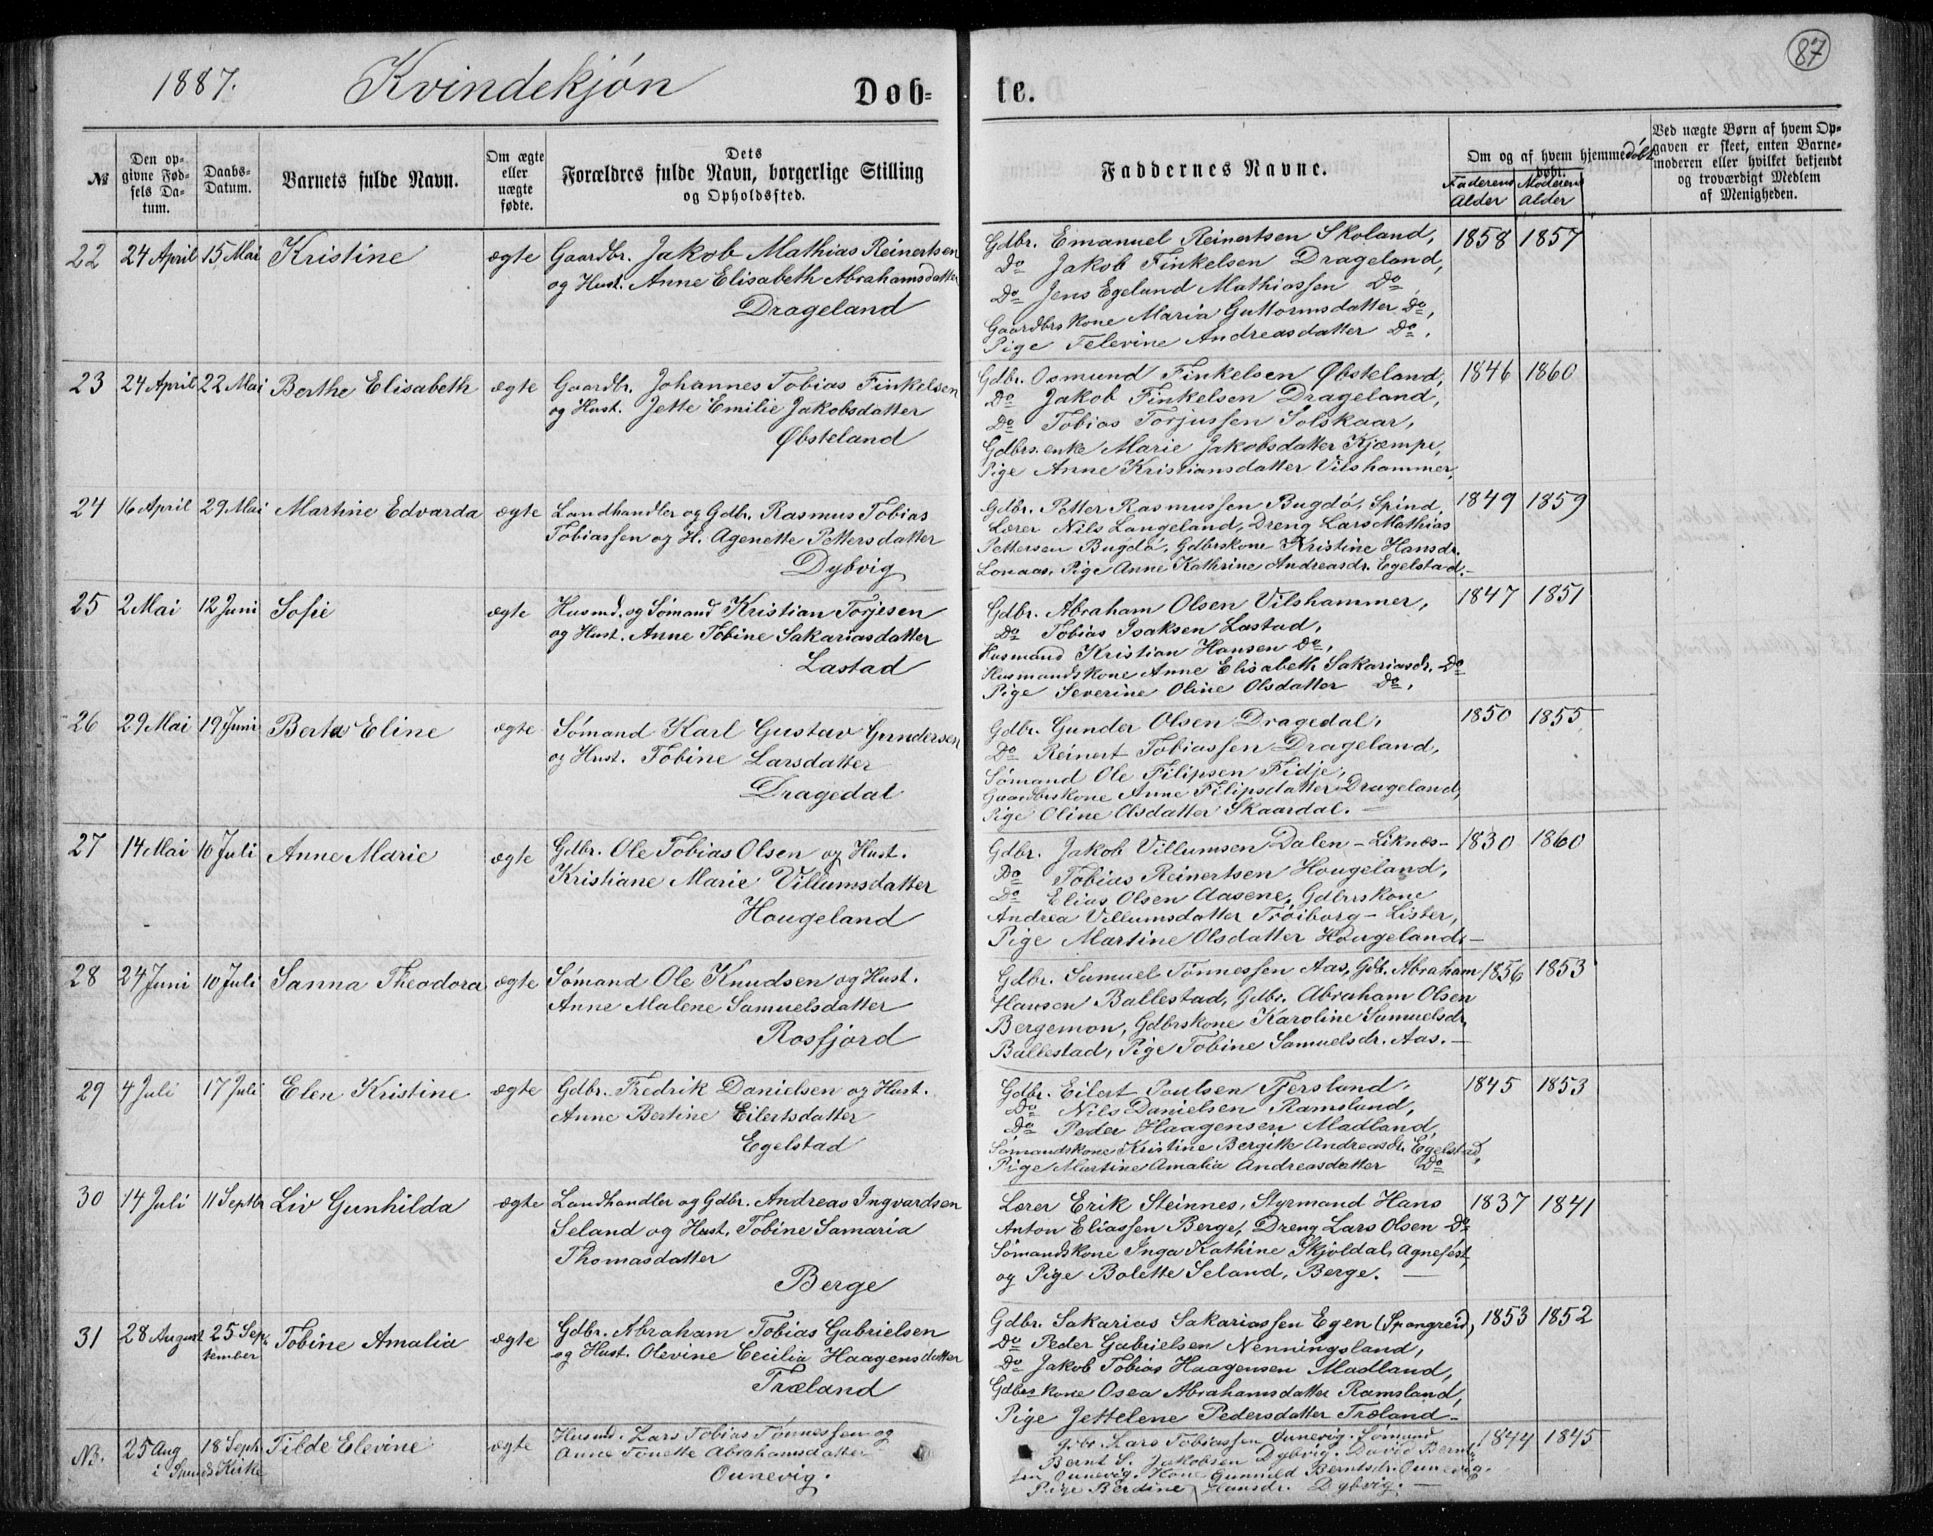 87
1887. Kvindekjøn Døb= te.
№ Den opgivne Fødsels Datum. Daabs-Datum. Barnets fulde Navn. Om ægte eller uægte fødte. Dets Forældres fulde Navn, borgerlige Stilling og Opholdssted. Faddernes Navne. Om og af hvem hjemmedøbt. Faderens Alder Moderens Alder Ved uægte Børn af hvem Opgaven er skeet, enten Barnemoderen eller hvilket bekjendt og troværdigt Medlem af Menigheden.
22 24 April 15 Mai Kristine ægte Gaardbr. Jakob Mathias Reinertsen
og Hust. Anne Elisabeth Abrahamsdatter
Drageland
Gdbr. Emanuel Reinertsen Skoland, 1858 1857
Do Jakob Finkelsen Drageland,
Do Jens Egeland Mathiassen Do,
Gaardbrskone Maria Guttormsdatter Do,
Pige Televine Andreasdatter Do.
23 24 April 22 Mai Berthe Elisabeth ægte Gaardbr. Johannes Tobias Finkelsen
og Hust. Jette Emilie Jakobsdatter
Øbsteland
Gdbr. Osmund Finkelsen Øbsteland, 1846 1860
Do Jakob Finkelsen Drageland,
Do Tobias Torjussen Solskaar,
Gdbrs. enke Marie Jakobsdatter Kjæmpe,
Pige Anne Kristiansdatter Vilshammer,
24 16 April 29 Mai Martine Edvarda ægte Landhandler og Gdbr. Rasmus Tobias
Tobiassen og H. Agenette Pettersdatter
Dybvig
Gdbr. Petter Rasmussen Bugdø, Spind, 1849 1859
Lærer Nils Langeland, Dreng Lars Mathias
Pettersen Bugdø, Gdbrskone Kristine Hansdr.
Lonaas, Pige Anne Kathrine Andreasdr. Egelstad.-
25 2 Mai 12 Juni Sofie ægte Husmd. og Sømand Kristian Torjesen
og Hust. Anne Tobine Sakariasdatter
Lastad
Gdbr. Abraham Olsen Vilshammer, 1847 1851
Do Tobias Isaksen Lastad,
Husmand Kristian Hansen Do,
Husmandskone Anne Elisabeth Sakariasdr. Do
Pige Severine Oline Olsdatter Do.
26 29 Mai 19 Juni Berta Eline ægte Sømand Karl Gustav Gundersen
og Hust. Tobine Larsdatter
Dragedal
Gdbr. Gunder Olsen Dragedal, 1850 1855
Do Reinert Tobiassen Drageland,
Sømand Ole Filipsen Fidje,
Gaardbrskone Anne Filipsdatter Drageland,
Pige Oline Olsdatter Skaardal. -
27 14 Mai 10 Juli Anne Marie ægte Gdbr. Ole Tobias Olsen og Hust.
Kristiane Marie Villumsdatter
Hougeland
Gdbr. Jakob Villumsen Dalen - Liknes- 1830 1860
Do Tobias Reinertsen Hougeland,
Do Elias Olsen Aasene, Gdbrskone
Andrea Villumsdatter Trøiborg - Lister,
Pige Martine Olsdatter Hougeland. -
28 24 Juni 10 Juli Sanna Theodora ægte Sømand Ole Knudsen og Hust.
Anne Malene Samuelsdatter
Rosfjord
Gdbr. Samuel Tønnessen Aas, Gdb. Abraham 1856 1853
Hansen Ballestad, Gdbr. Abraham Olsen
Bergemon, Gdbrskone Karoline Samuelsdr.
Ballestad, Pige Tobine Samuelsdr. Aas. -
29 4 Juli 17 Juli Elen Kristine ægte Gdbr. Fredrik Danielsen og Hust.
Anne Bertine Eilertsdatter
Egelstad
Gdbr. Eilert Poulsen Tjersland. 1845 1853
Do Nils Danielsen Ramsland,
Do Peder Haagensen Madland,
Sømandskone Kristine Bergitte Andreasdr. Egelstad,
Pige Martine Amalia Andreasdatter Do
30 14 Juli 11 Septbr Liv Gunhilda ægte Landhandler og Gdbr. Andreas Ingvardsen
Seland og Hust. Tobine Samaria
Thomasdatter
Berge
Lærer Erik Steinnes, Styrmand Hans 1837 1841
Anton Eliassen Berge, Dreng Lars Olsen Do
Sømandskone Inga Kathine Skjoldal, Agnefest,
og Pige Bolette Seland, Berge. -
31 28 August 25 September Tobine Amalia ægte Gdbr. Abraham Tobias Gabrielsen
og Hust. Olevine Cecilia Haagensdatter
Træland
Gdbr. Sakarias Sakariassen Egen (Spangreid), 1853 1852
Do Peder Gabrielsen Nenningsland,
Do Jakob Tobias Haagensen Madland,
Gdbrskone Osea Abrahamsdatter Ramsland,
Pige Jettelene Pedersdatter Træland -
NB. 25 Aug 18 Septr Tilde Elevine ægte Husmd. Lars Tobias Tønnessen og
i Spinds Kirke Anne Tonette Abrahamsdatter
Ounevig.
Gdbr. Lars Tobiassen Ounevig. Sømand 1844 1845
Bernt S. Jakobsen Dybvig. David Berntsen
Ounevig. Kone Gunnild Berntsdr. Ounevig.
Pige Berdine Hansdr. Dybvig. -